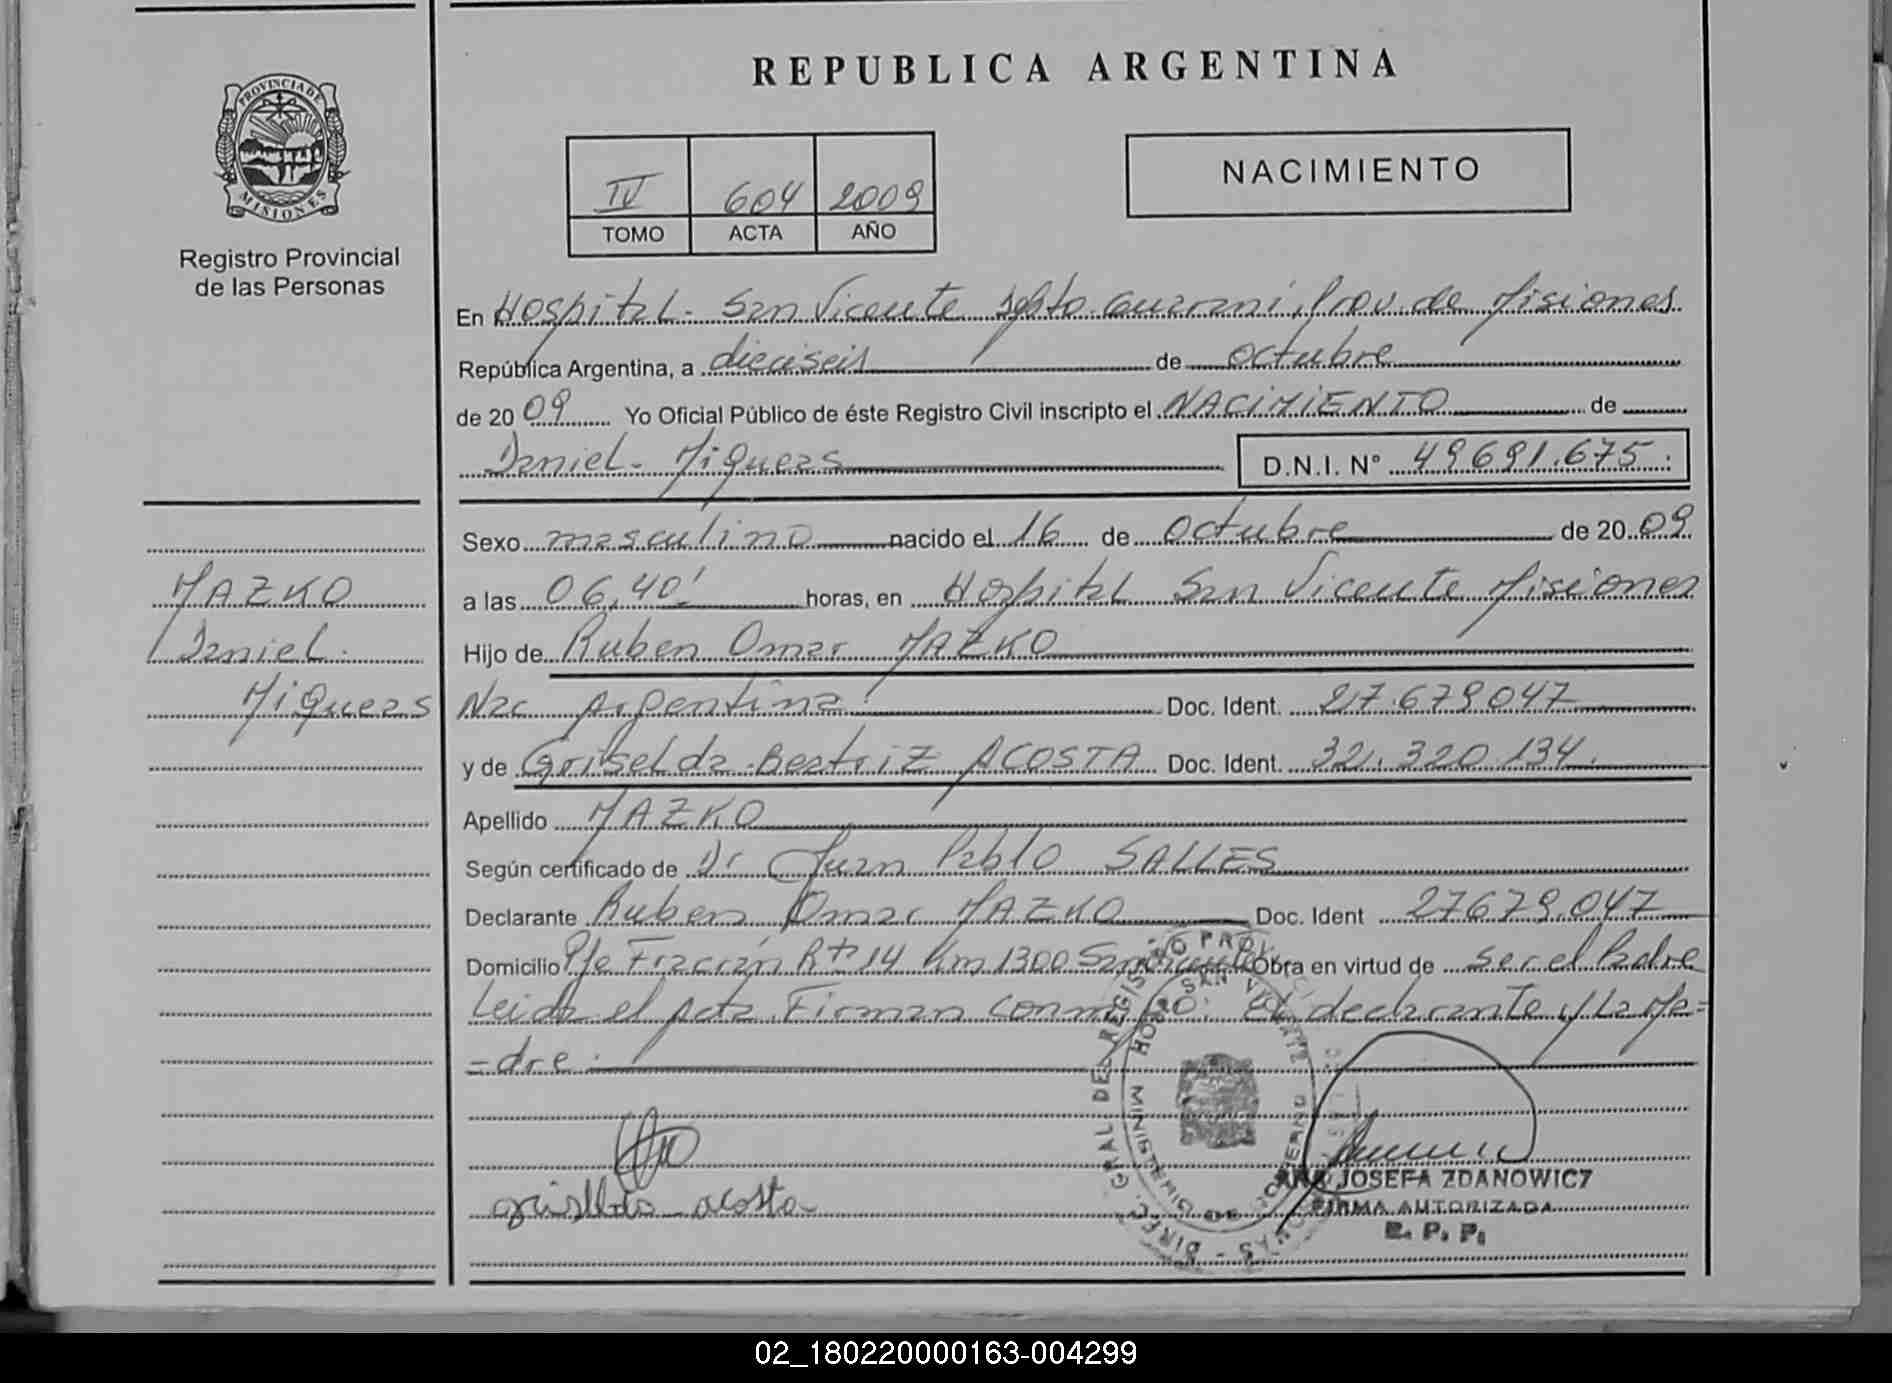 REPUBLICA ARGENTINA
PROVINCIA DE
MISIONES
Registro Provincial
de las Personas
IV 604 2009
TOMO ACTA AÑO
NACIMIENTO
En Hospital - San Vicente Dpto. Guaraní, Prov. de Misiones
República Argentina, a dieciseis de octubre
de 2009 Yo Oficial Público de éste Registro Civil inscripto el NACIMIENTO de
Daniel - Miqueas D.N.I. Nº 49691.675
Sexo masculino nacido el 16 de octubre de 2009
a las 06,40' horas, en Hospital San Vicente Misiones
MAZKO
Daniel
Miqueas
Hijo de Ruben Omar MAZKO
Nac Argentina Doc. Ident. 27.679047
y de Griselda Beatriz ACOSTA Doc. Ident. 32.320 134.
Apellido MAZKO
Según certificado de Dr Juan Pablo SALLES
Declarante Ruben Omar MAZKO Doc. Ident 27679.047
Domicilio Pje Fracrán Rta 14 Km 1300 San Vicente Obra en virtud de ser el Padre
Leida el acta Firman conmigo: el declarante y La Ma=
=dre.
DIREC. GRAL DEL REGISTRO PROV.
HOSP. SAN VICENTE
MINISTERIO DE GOBIERNO
griselda acosta
ANA JOSEFA ZDANOWICZ
FIRMA AUTORIZADA
R. P. P.
02_180220000163-004299